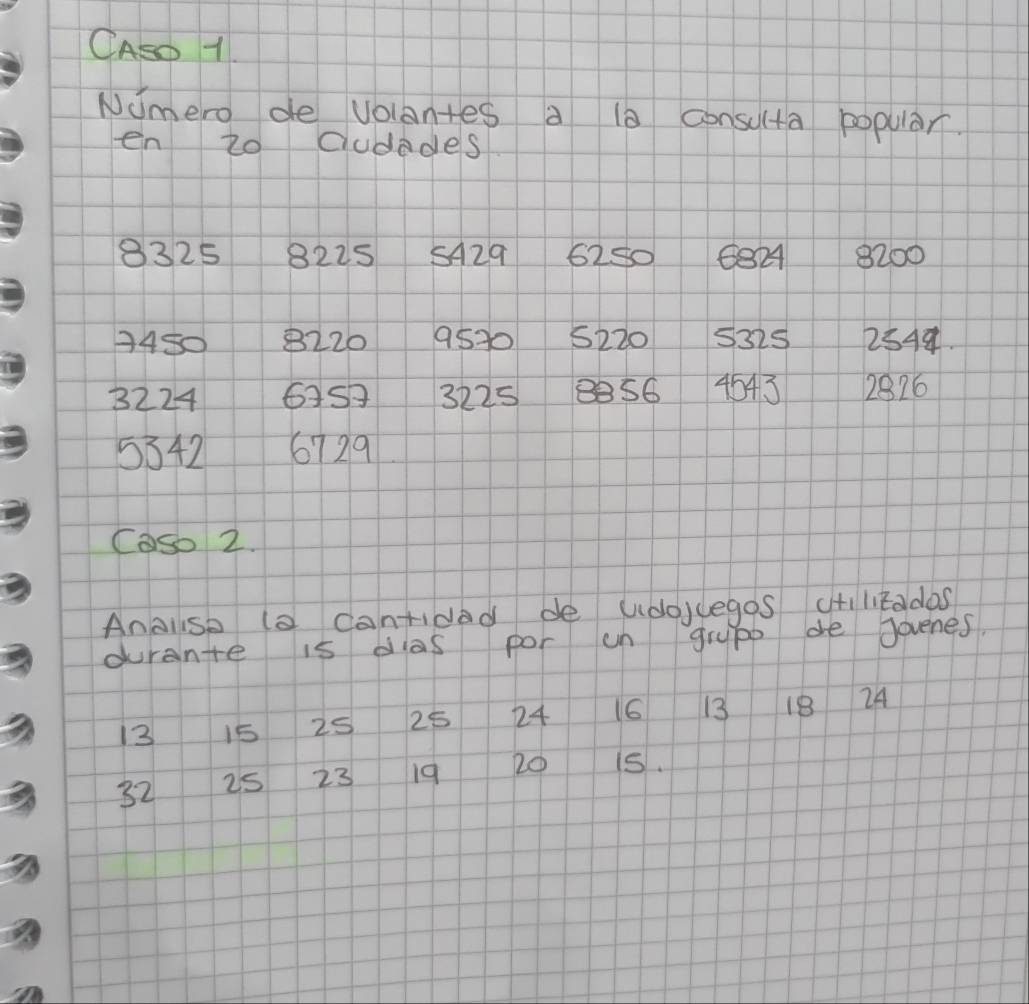 CASO 1.
Número de Volantes a la consulta popular.
en 20 Ciudades.
8325 8225 5429 6250 6824 8200
7450 8220 9570 5220 5325 2544.
3224 6757 3225 8856 4543 2826
5342 6729
Caso 2.
Analisa la cantidad de vidojuegos utilizados
durante 15 dias por un grupo de Jovenes.
13 15 25 25 24 16 13 18 24
32 25 23 19 20 15.